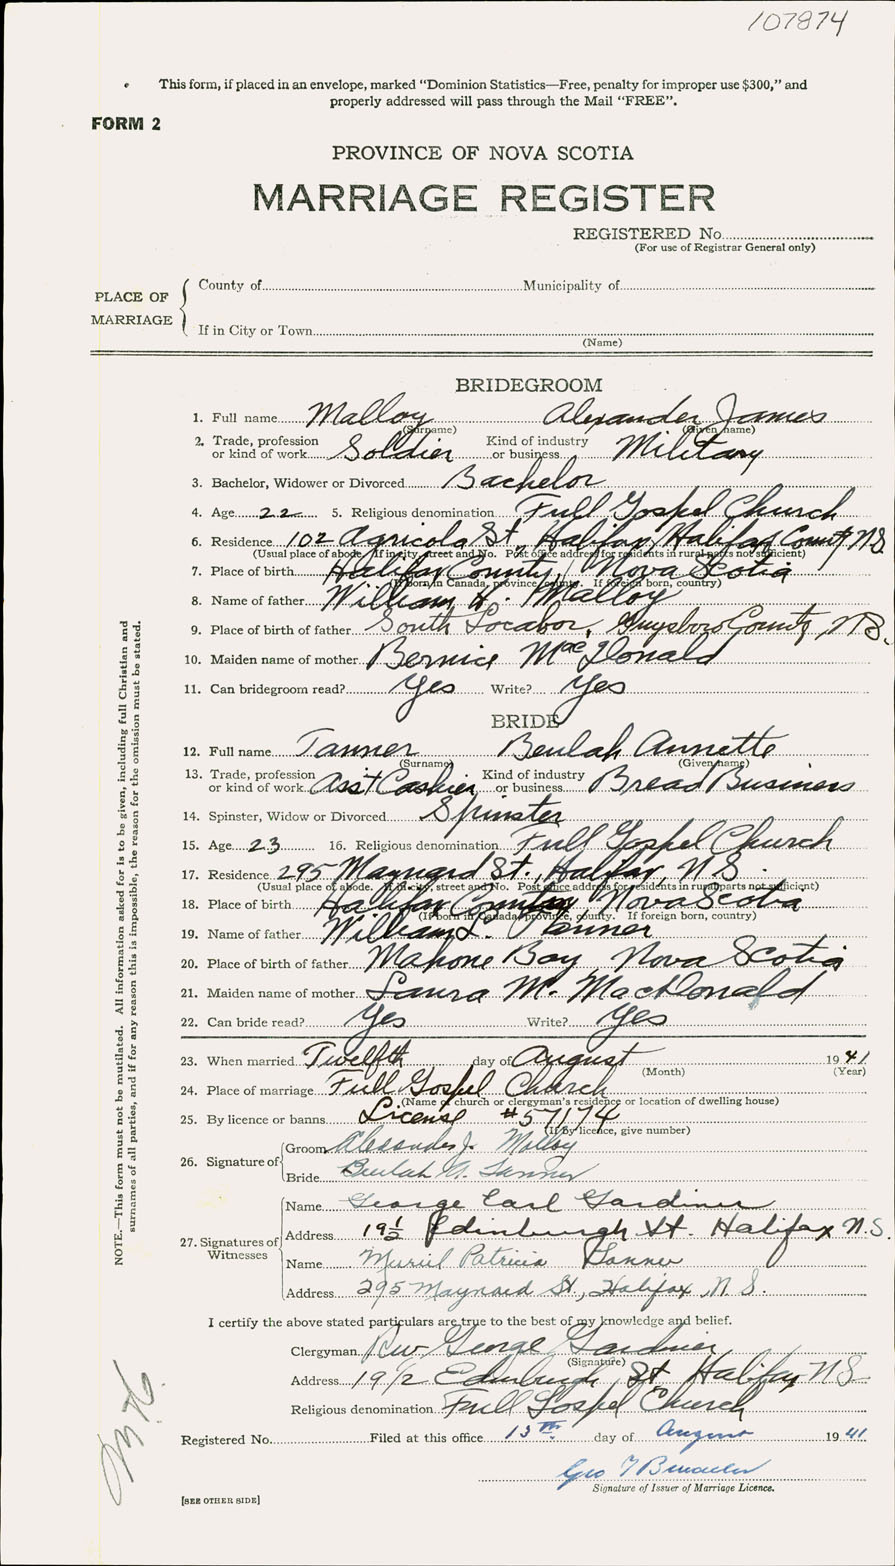 107874
This form, if placed in an envelope, marked "Dominion Statistics—Free, penalty for improper use $300," and
properly addressed will pass through the Mail "FREE".
FORM 2
PROVINCE OF NOVA SCOTIA
MARRIAGE REGISTER
REGISTERED No.
(For use of Registrar General only)
PLACE OF MARRIAGE
County of Municipality of
If in City or Town
(Name)
BRIDEGROOM
1. Full name Malloy Alexander James
(Surname) (Given name)
2. Trade, profession or kind of work Soldier Kind of industry or business Military
3. Bachelor, Widower or Divorced Bachelor
4. Age 22 5. Religious denomination Full Gospel Church
6. Residence 102 Agricola St., Halifax, Halifax County N.S.
(Usual place of abode. If in city, street and No. Post office address for residents in rural parts not sufficient)
7. Place of birth Halifax County, Nova Scotia
(If born in Canada, province, county. If foreign born, country)
8. Name of father William H. Malloy
9. Place of birth of father South Locabor, Guysboro County, N.S.
10. Maiden name of mother Bernice MacDonald
11. Can bridegroom read? Yes Write? Yes
BRIDE
12. Full name Tanner Beulah Annette
(Surname) (Given name)
13. Trade, profession or kind of work Ass't Cashier Kind of industry or business Bread Business
14. Spinster, Widow or Divorced Spinster
15. Age 23 16. Religious denomination Full Gospel Church
17. Residence 295 Maynard St., Halifax, N.S.
(Usual place of abode. If in city, street and No. Post office address for residents in rural parts not sufficient)
18. Place of birth Halifax County Nova Scotia
(If born in Canada, province, county. If foreign born, country)
19. Name of father William L. Tanner
20. Place of birth of father Mahone Bay Nova Scotia
21. Maiden name of mother Laura M. MacDonald
22. Can bride read? Yes Write? Yes
23. When married Twelfth day of August 1941
(Month) (Year)
24. Place of marriage Full Gospel Church
(Name of church or clergyman's residence or location of dwelling house)
25. By licence or banns License #57174
(If by licence, give number)
26. Signature of
Groom Alexander J. Malloy
Bride Beulah A. Tanner
27. Signatures of Witnesses
Name George Earl Gardiner
Address 19½ Edinburgh St. Halifax N.S.
Name Muriel Patricia Tanner
Address 295 Maynard St., Halifax, N.S.
I certify the above stated particulars are true to the best of my knowledge and belief.
Clergyman Rev George Gardiner
(Signature)
Address 19 1/2 Edinburgh St Halifax N.S.
Religious denomination Full Gospel Church
Registered No. Filed at this office 13th day of August 1941
Signature of Issuer of Marriage Licence.
[SEE OTHER SIDE]
NOTE.—This form must not be mutilated. All information asked for is to be given, including full Christian and
surnames of all parties, and if for any reason this is impossible, the reason for the omission must be stated.